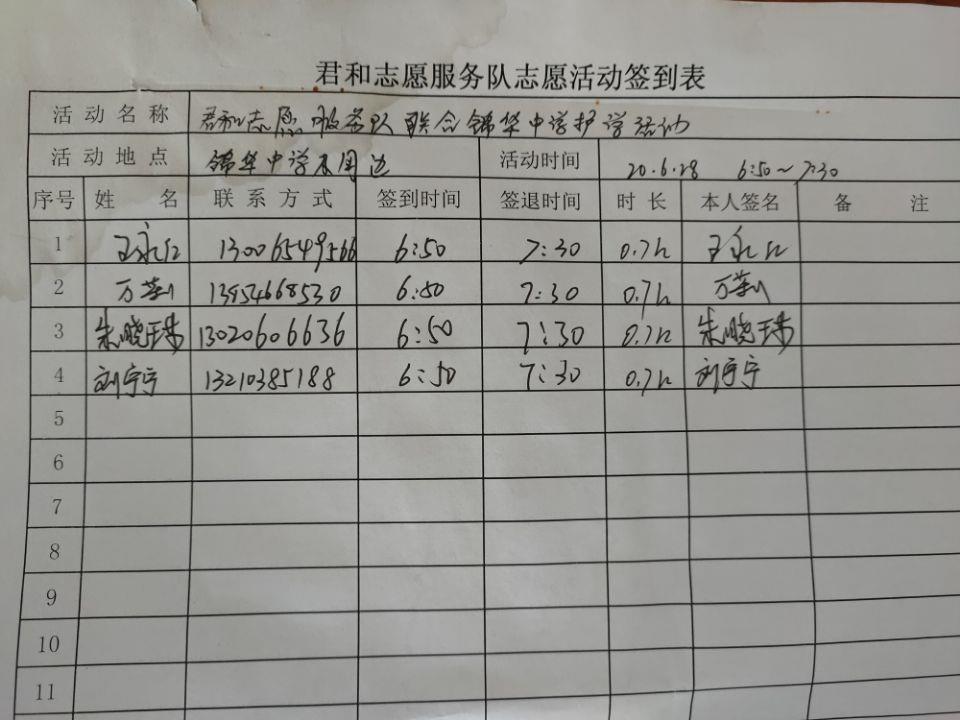 君和志愿服务队志愿活动签到表
活动名称 君和志愿服务队联合锦华中学护学活动
活动地点 锦华中学及周边 活动时间 20.6.28 6:50~7:30
序号 姓名 联系方式 签到时间 签退时间 时长 本人签名 备注
1 王永红 13006549566 6:50 7:30 0.7h 王永红
2 万 6:50 7:30 0.7h 万
3 朱晓珠 13020606636 6:50 7:30 0.7h 朱晓珠
4 刘宁宁 13210385188 6:50 7:30 0.7h 刘宁宁
5
6
7
8
9
10
11